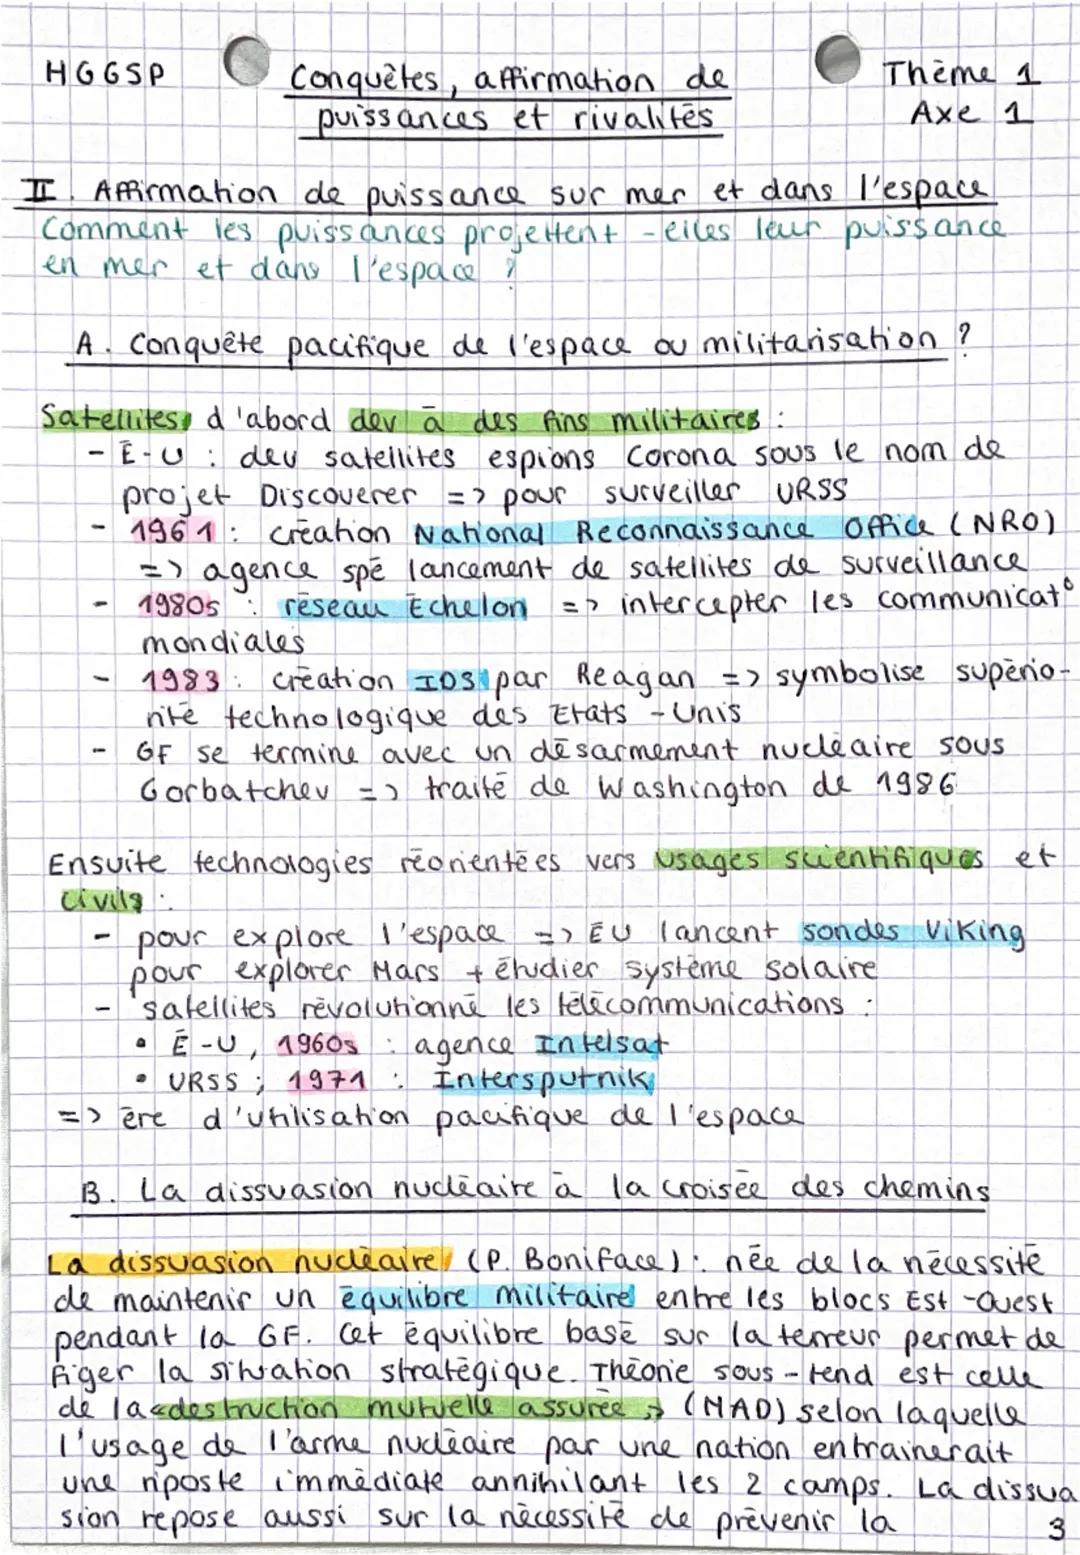 HGGSP
Conquêtes, affirmation de
puissances et rivalités
Thème 1
Axe 1
II. Affirmation de puissance sur mer et dans l'espace
Comment les puissances projettent-elles leur puissance
en mer et dans l'espace ?
A. Conquête pacifique de l'espace ou militarisation ?
Satellites d'abord dev à des fins militaires :
- É-U : dev satellites espions Corona sous le nom de
projet Discoverer => pour surveiller URSS
- 1961 : création National Reconnaissance Office (NRO)
=> agence spé lancement de satellites de surveillance
- 1980s : réseau Echelon => intercepter les communicat°
mondiales
- 1983 : création IDS par Reagan => symbolise supério-
rité technologique des Etats-Unis
- GF se termine avec un désarmement nucléaire sous
Gorbatchev => traité de Washington de 1986
Ensuite technologies réorientées vers usages scientifiques et
civils :
- pour explore l'espace => ÉU lancent sondes Viking
pour explorer Mars + étudier système solaire
- satellites révolutionné les télécommunications :
• É-U, 1960s : agence Intelsat
• URSS ; 1971 : Intersputnik
=> ère d'utilisation pacifique de l'espace
B. La dissuasion nucléaire à la croisée des chemins
La dissuasion nucléaire (P. Boniface) : née de la nécessité
de maintenir un équilibre militaire entre les blocs Est-Ouest
pendant la GF. Cet équilibre basé sur la terreur permet de
figer la situation stratégique. Théorie sous-tend est celle
de la «destruction mutuelle assurée» (MAD) selon laquelle
l'usage de l'arme nucléaire par une nation entrainerait
une riposte immédiate annihilant les 2 camps. La dissua
sion repose aussi sur la nécessité de prévenir la
3